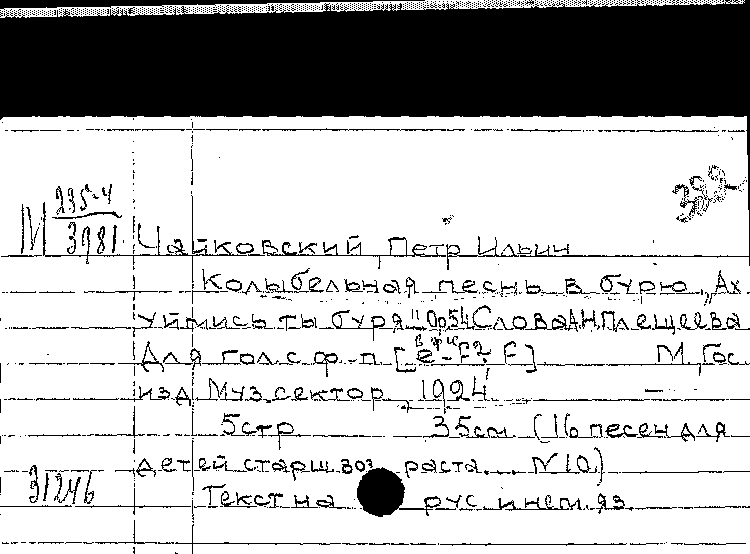 322
М 235-4
3981
Чайковский, Петр Ильич
Колыбельная песнь в бурю „Ах
уймись ты буря" Ор54 Слова А.Н.Плещеева
Для гол. с ф-п М., Гос.
изд. Муз. сектор, 1924
5 стр. 35 см. (16 песен для
детей старш. воз раста... N 10.)
31246
Текст на рус. и нем. яз.